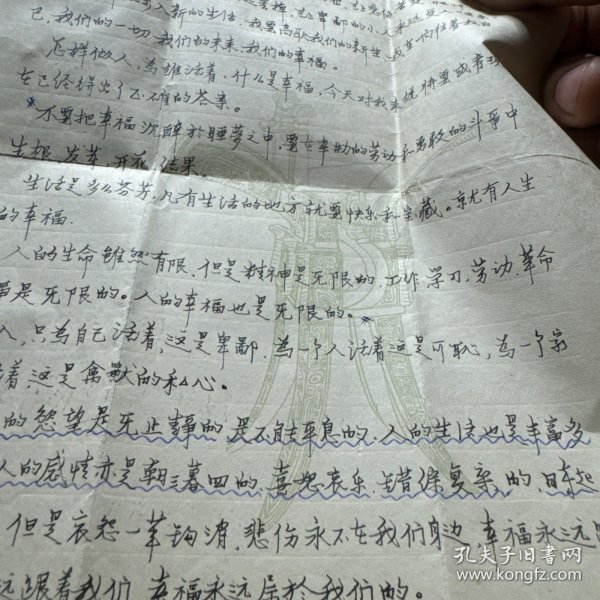 入新的生活,我要高歌我们的新生
已,我们的一切,我们的未来,我们的幸福。
怎样做人,為誰活着,什么是幸福,今天对我
在已经得出了正确的答案。
不要把幸福沉醉於睡夢之中,要在辛勤的劳动和勇敢的斗爭中
生根,发芽,开花,结果。
生活是多么芬芳,凡有生活的地方就要快乐和宝藏。就有人生
的幸福.
人的生命雖然有限,但是精神是无限的,工作,学习,劳动,革命
是无限的。人的幸福也是无限的。
人,只為自己活着,这是卑鄙.為一个人活着这是可恥,為一个家
着这是禽獸的私心。
的慾望是无止静的,是不能平息的.人的生活也是丰富多
人的感情亦是朝三暮四的,喜怒哀乐,错综复杂的,日
但是哀怨一笔钩消,悲伤永不在我们身边,幸福永远
远跟着我们,幸福永远居於我们的。
孔夫子旧書网
www.kongfz.com